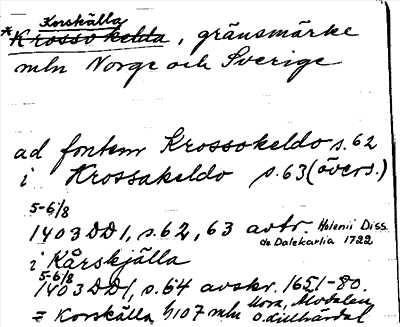 Korskälla
*Krossokelda, gränsmärke
mln Norge och Sverige
ad fontem Krossokeldo s. 62
i Krossakeldo s. 63 (övers.)
5-6/8
1403 DD1, s. 62, 63 avtr. Holenii Diss.
de Dalekarlia 1722
i Kårskjälla
5-6/8
1403 DD1, s. 64 avskr. 1651-80.
= Korskälla, h107 mln Mora, Älvdalen
o. Lillhärdal